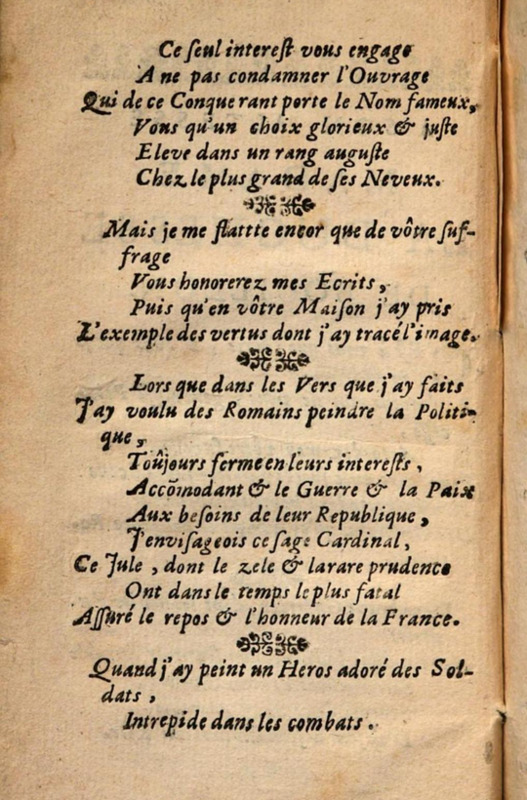 Ce ſeul intereſt vous engage
A ne pas condamner l'Ouvrage
Qui de ce Conque rant porte le Nom fameux,
Vous qu'un choix glorieux & juſte
Eleve dans un rang auguſte
Chez le plus grand de ſes Neveux.
Mais je me flattte encor que de vôtre ſuf-
frage
Vous honorerez mes Ecrits,
Puis qu'en vôtre Maiſon j'ay pris
L'exemple des vertus dont j'ay tracé l'image.
Lors que dans les Vers que j'ay faits
J'ay voulu des Romains peindre la Politi-
que,
Toûjours ferme en leurs intereſts,
Accõmodant & le Guerre & la Paix
Aux beſoins de leur Republique,
J'enviſageois ce ſage Cardinal,
Ce Jule, dont le zele & la rare prudence
Ont dans le temps le plus fatal
Aſſuré le repos & l'honneur de la France.
Quand j'ay peint un Heros adoré des Sol-
dats,
Intrepide dans les combats.